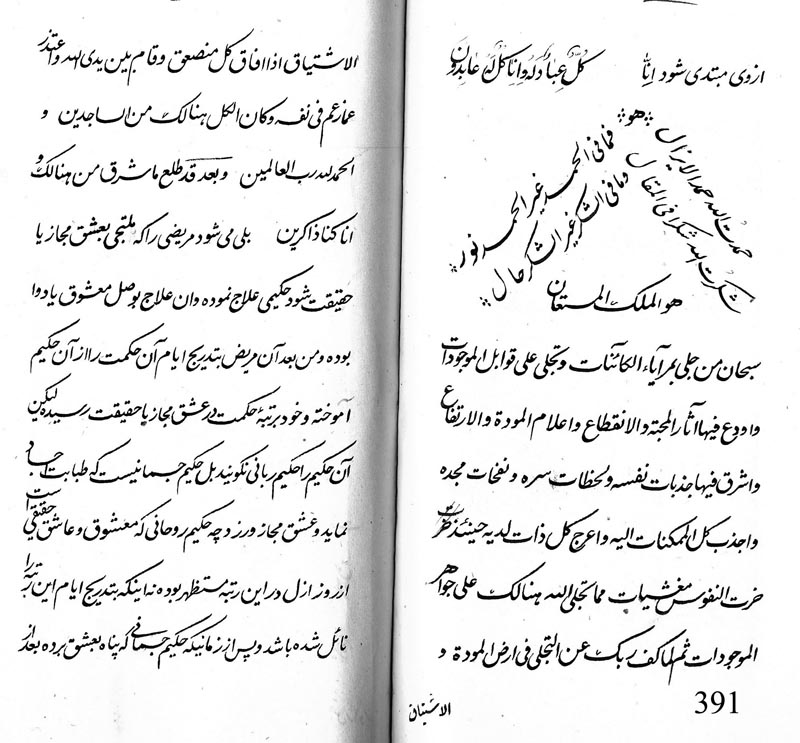 ازوی مبتدی شود انّا کل عباد له وانا کل له عابدون
هو
حمدت الله حمد الایزال فما فی الحمد غیر الحمد نور
شکرت الله شکرا فی المقال وما فی الشکر غیر الشکر حال
هو الملک المستعان
سبحان من جلی بمرآیاء الکائنات وتجلی علی قوابل الموجودات
واودع فیها آثار المحبة والانقطاع واعلام المودة والارتفاع
واشرق فیها جذبات نفسه ولحظات سره ونفحات مجده
واجذب کل الممکنات الیه واعرج کل ذات لدیه حینئذ
خرت النفوس مغشیات مما تجلی الله هنالک علی جواهر
الموجودات ثم لما کف ربک عن التجلی فی ارض المودة و
الاشتیاق
391
الاشتیاق اذا افاق کل منصعق وقام بین یدی الله واعتذر
عما زعم فی نفسه وکان الکل هنالک من الساجدین و
الحمد لله رب العالمین وبعد قد طلع ما شرق من هنالک و
انا کنا ذاکرین بلی می شود مریضی را که ملتجی بعشق مجاز یا
حقیقت شود حکیمی علاج نموده وان علاج بوصل معشوق یا دوا
بوده ومن بعد آن مریض بتدریج ایام آن حکمت را از آن حکیم
آموخته وخود برتبهٔ حکمت در عشق مجاز یا حقیقت رسیده لیکن
آن حکیم را حکیم ربانی نگویند بل حکیم جسمانیست که طبابت اجساد
نماید وعشق مجاز ورزد چه حکیم روحانی که معشوق وعاشق حقیقی است
از روز ازل در این رتبه مستظهر بوده نه اینکه بتدریج ایام این رتبه را
نائل شده باشد وپس از زمانیکه حکیم جسمانی که پناه بعشق برده بعد از